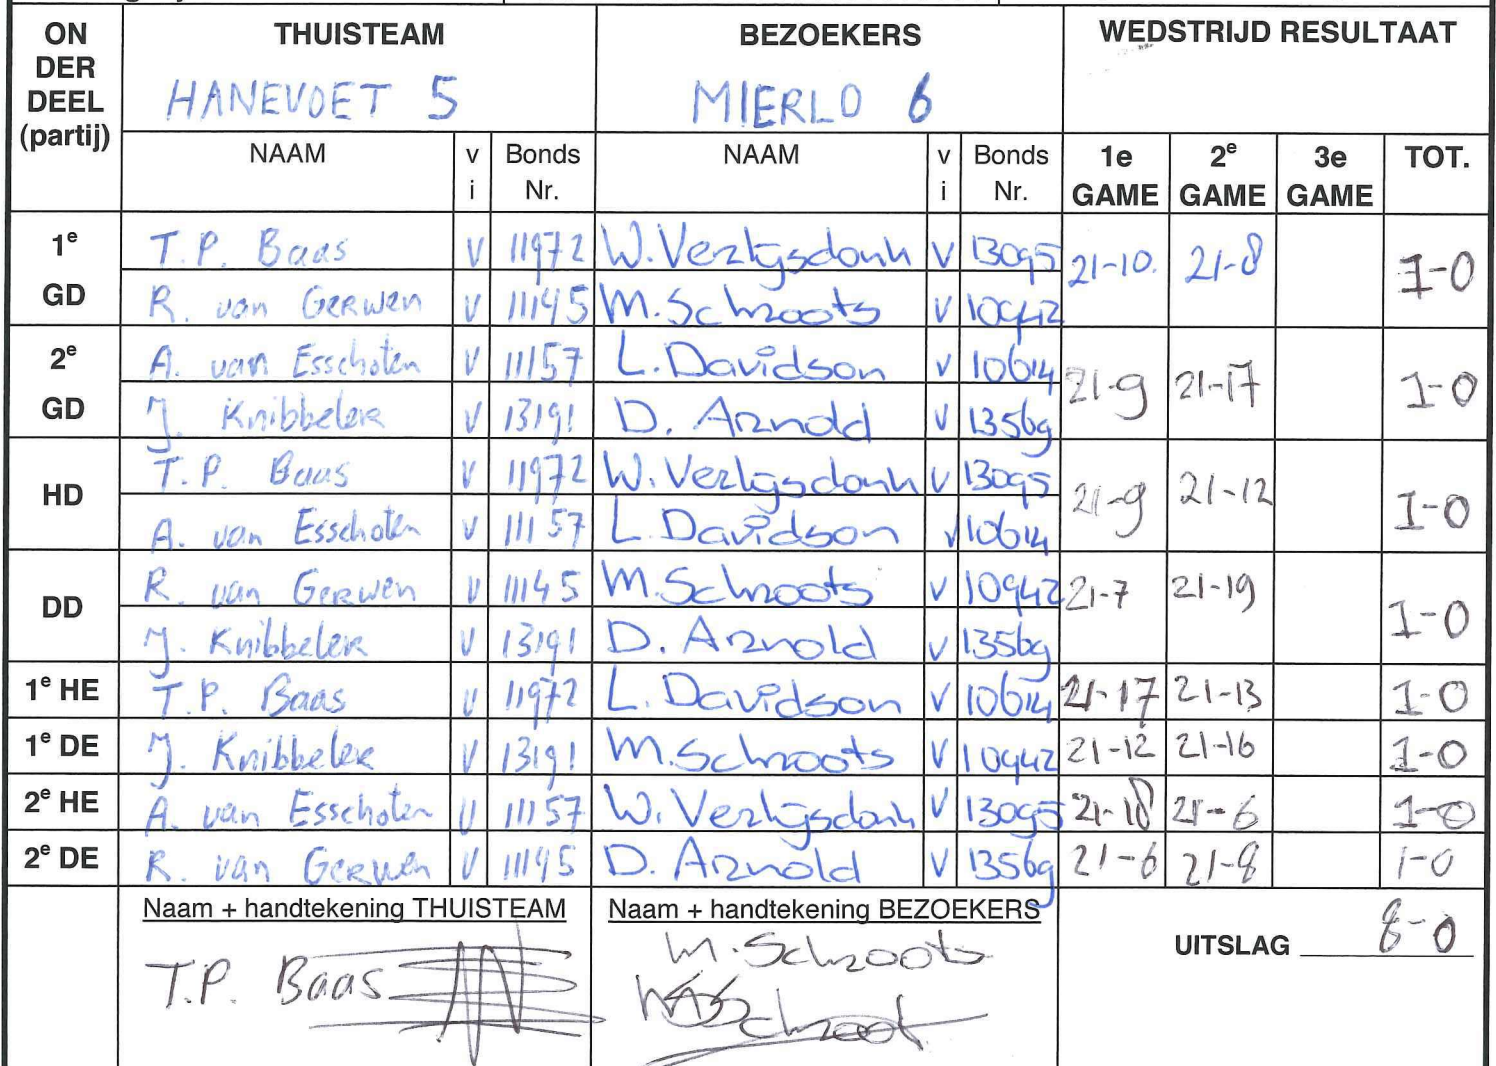 ON DER DEEL (partij) THUISTEAM BEZOEKERS WEDSTRIJD RESULTAAT
HANEVOET 5 MIERLO 6
NAAM vi Bonds Nr. NAAM vi Bonds Nr. 1e GAME 2e GAME 3e GAME TOT.
1e GD T.P. Baas V 11972 W. Verlijsdonk V 13095 21-10. 21-8 1-0
R. van Gerwen V 11145 M. Schroots V 10942
2e GD A. van Esschoten V 11157 L. Davidson V 10614 21-9 21-17 1-0
J. Knibbeler V 13191 D. Arnold V 13569
HD T.P. Baas V 11972 W. Verlijsdonk V 13095 21-9 21-12 1-0
A. van Esschoten V 11157 L. Davidson V 10614
DD R. van Gerwen V 11145 M. Schroots V 10942 21-7 21-19 1-0
J. Knibbeler V 13191 D. Arnold V 13569
1e HE T.P. Baas V 11972 L. Davidson V 10614 21-17 21-13 1-0
1e DE J. Knibbeler V 13191 M. Schroots V 10942 21-12 21-16 1-0
2e HE A. van Esschoten V 11157 W. Verlijsdonk V 13095 21-18 21-6 1-0
2e DE R. van Gerwen V 11145 D. Arnold V 13569 21-6 21-8 1-0
Naam + handtekening THUISTEAM Naam + handtekening BEZOEKERS UITSLAG 8-0
T.P. Baas M. Schroots